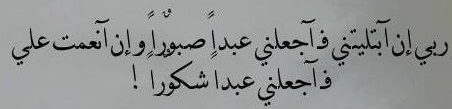 ربي إن آبتليتني فآجعلني عبداً صبوراً و إن آنعمت علي
فآجعلني عبداً شكوراً !